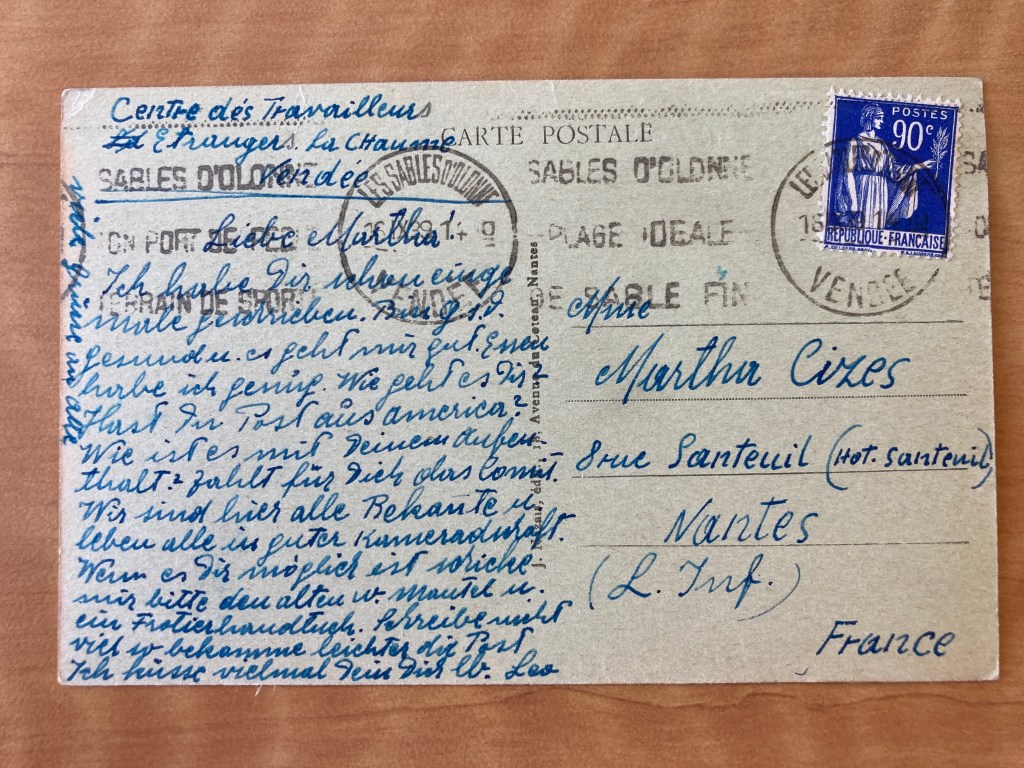 Centre dés Travailleurs
Etrangers. La Chaume
Vendée
CARTE POSTALE
POSTES
90c
REPUBLIQUE · FRANÇAISE
SABLES D'OLONNE
LES SABLES D'OLONNE
SABLES D'OLONNE
SON PORT DE
PLAGE IDEALE
TERRAIN DE SPORT
VENDÉE
DE SABLE FIN
VENDÉE
Liebe Martha!
Ich habe Dir schon einge
male geschrieben. Bin g.s.d.
gesund u. es geht mir gut. Essen
habe ich genug. Wie geht es Dir?
Hast Du Post aus america?
Wie ist es mit Deinem Aufen
thalt? Zahlt für Dich das Comit.
Wir sind hier alle Bekante u.
leben alle in guter Kameradschaft.
Wenn es Dir möglich ist schicke
mir bitte den alten w. Mantel u.
ein Frotierhandtuch. Schreibe nicht
viel so bekomme leichter die Post
Ich küsse vielmal Dein Dich lb. Leo
viele Grüsse an alle
J. Nozais, édit., Avenue du Leteau, Nantes
Mme
Martha Cizes
8 rue Santeuil (Hot. Santeuil)
Nantes
(L. Inf.)
France